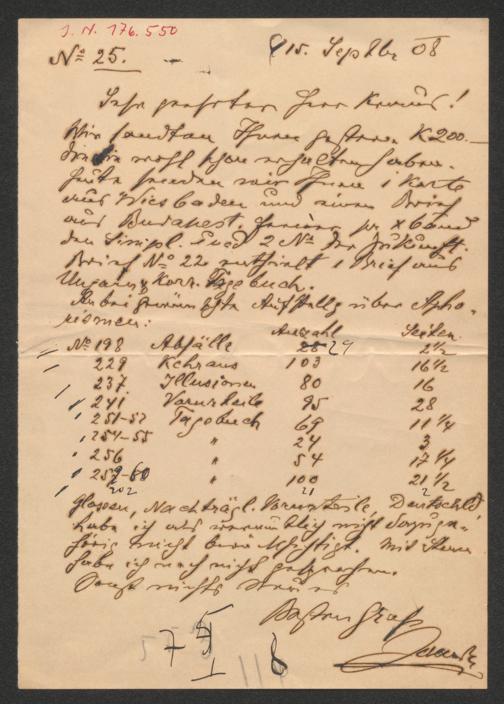 J. N. 176.550
No 25. 15. Septbr 08
Sehr geehrter Herr Kraus!
Wir sandten Ihnen gestern K 200.—
die Sie wohl schon erhalten haben.
Heute senden wir Ihnen 1 Karte
aus Wiesbaden und einen Brief
aus Budapest. Ferner pr xband
den Simpl. und 2 No der Zukunft.
Brief No 22 enthielt 1 Brief aus
Ungarn & Korr. Tagebuch.
Anbei genaueste Aufstellg über Apho-
rismen:
Anzahl Seiten
No 198 Abfälle 28 29 2 1/2
229 Kehraus 103 16 1/2
237 Illusionen 80 16
241 Vorurteile 95 28
251-52 Tagebuch 69 11 1/4
254-55 " 24 3
256 " 54 17 1/4
259-60 " 100 21 1/2
202 21 2
Glossen, Nachträgl. Vorurteile, Deutschld
habe ich als vermutlich nicht dazuge-
hörig nicht berücksichtigt. Mit
habe ich noch nicht gesprochen.
Sonst nichts Neues
Besten Gruß